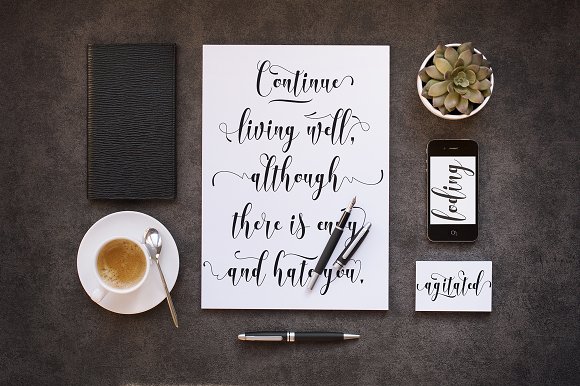 Continue
living well,
although
there is envy
and hate you,
loding
agitated